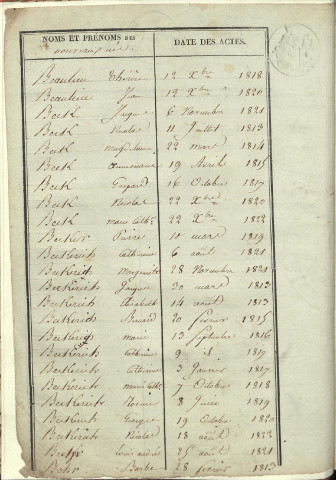 NOMS ET PRÉNOMS DES DATE DES ACTES.
nouveaux nés.
Beaulieu Thérèse 12 Xbre 1818
Beaulieu Jean 12 Xbre 1820
Beck Jacques 6 Novembre 1821
Beck Nicolas 11 Juillet 1813
Beck Magdeleine 22 mars 1814
Beck 19 Avril 1815
Beck Gaspard 16 Octobre 1817
Beck Nicolas 22 Xbre 1820
Beck marie Cathne 22 Xbre 1822
Becker Pierre 10 mars 1819
Beckerich Catherine 6 août 1821
Beckerich Marguerite 28 Novembre 1821
Beckerich Jacques 30 mars 1813
Beckerich Elisabeth 14 août 1813
Beckerich Bernard 20 février 1815
Beckerich marie 13 Septembre 1816
Beckerich Catherine 9 1817
Beckerich Catherine 3 Janvier 1817
Beckerich marie Cathne 7 Octobre 1818
Beckerich 8 Juin 1819
Beckerich George 19 Octobre 1820
Beckerich Nicolas 18 août 1822
louis andré 25 août 1822
Behr Barbe 28 février 1813